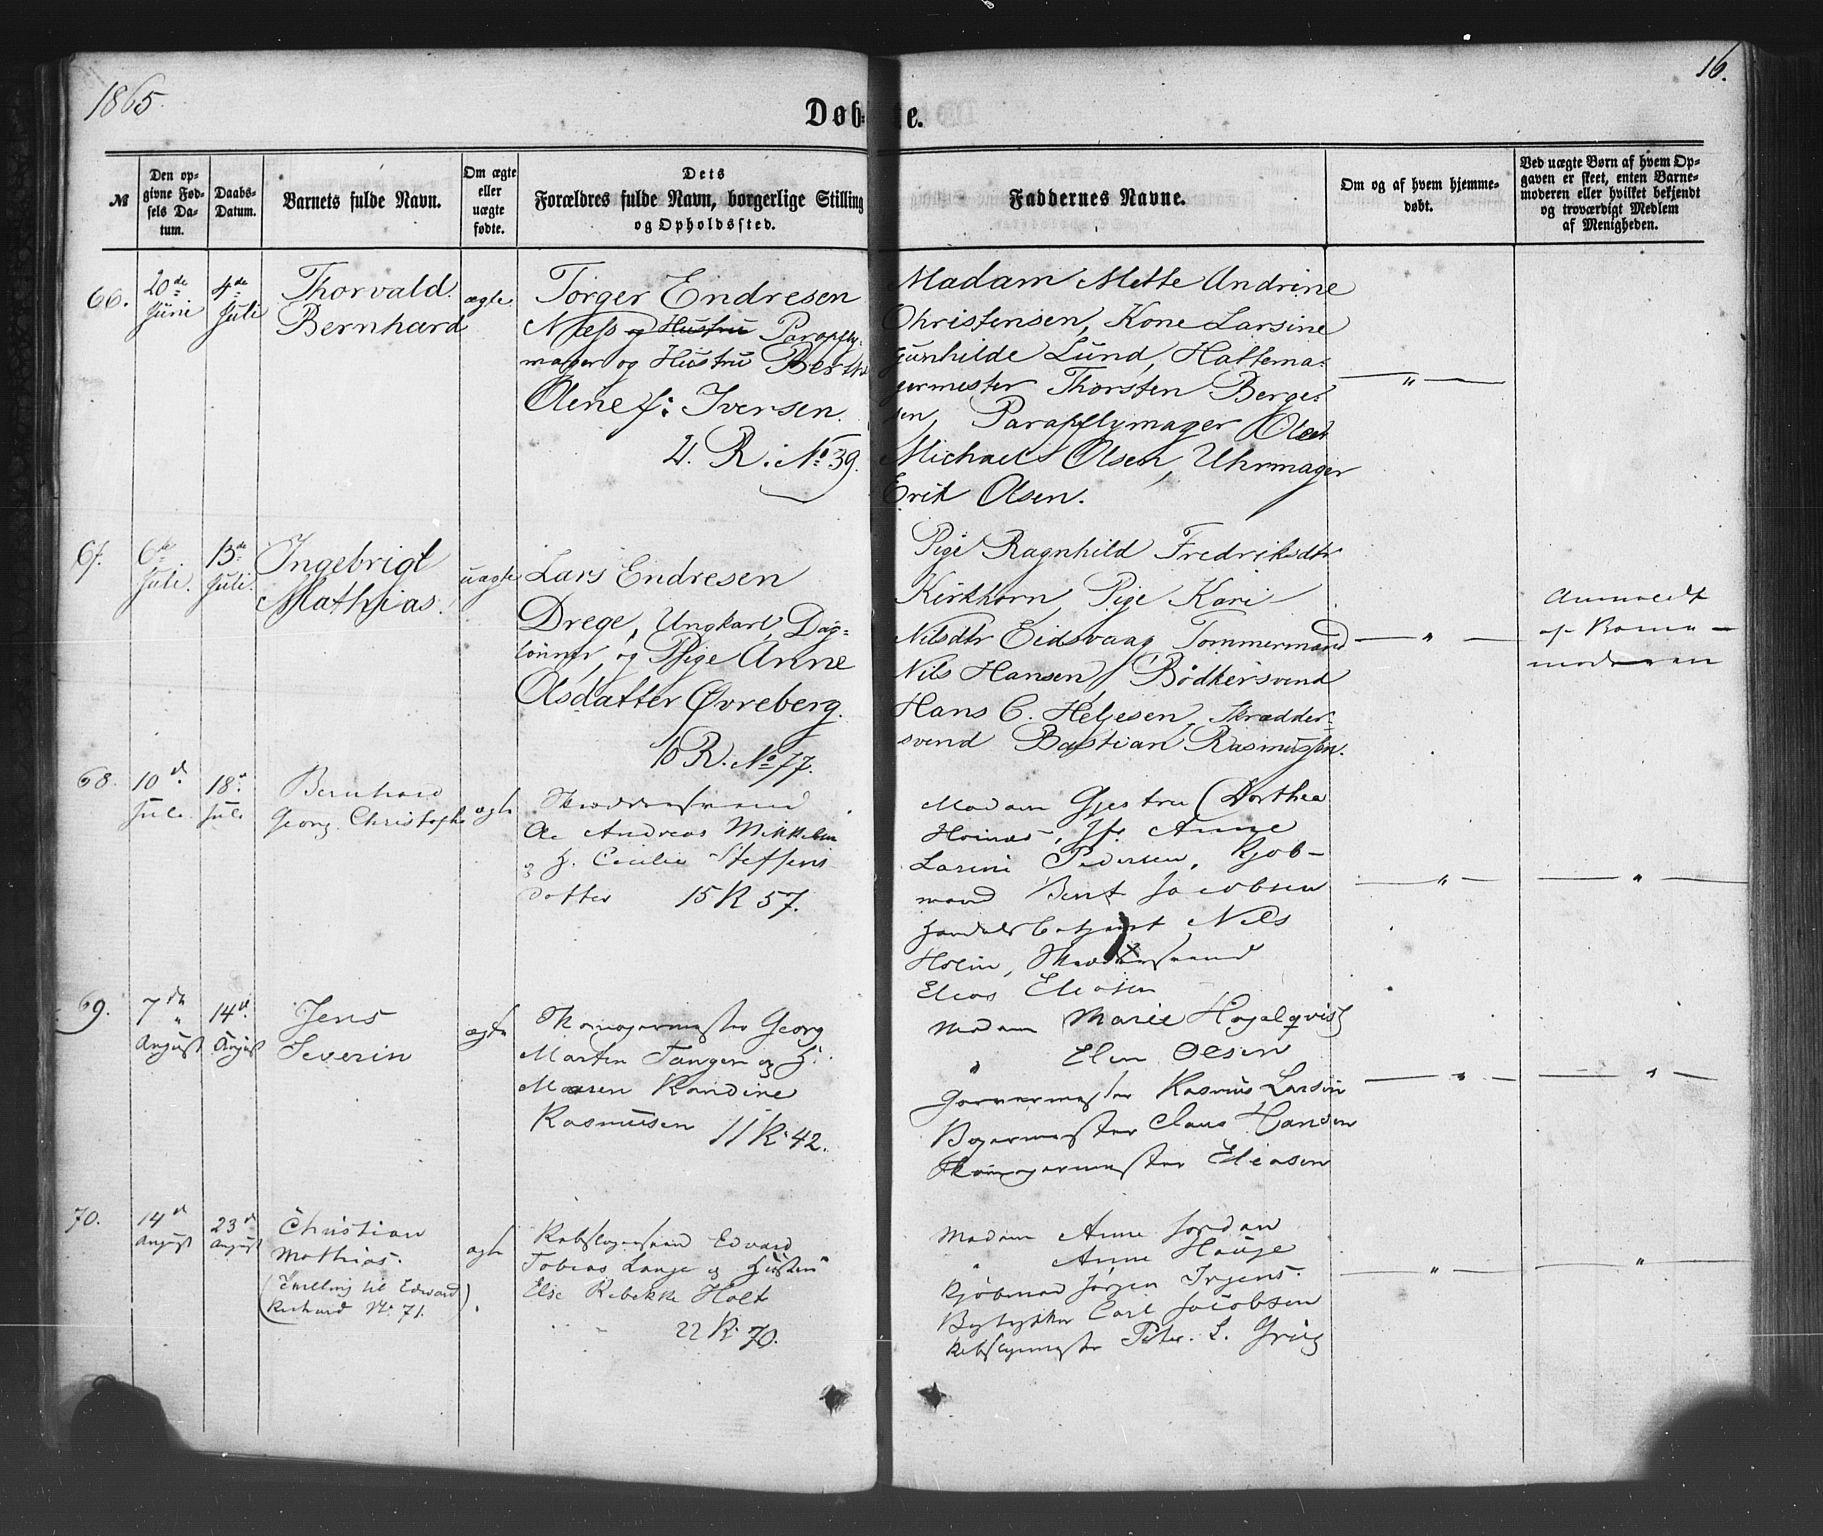 1865.
16.
Døb te.
№
Den op-
givne Fød-
sels Da-
tum.
Daabs-
Datum.
Barnets fulde Navn.
Om ægte
eller
uægte
fødte.
Dets
Forældres fulde Navn, borgerlige Stilling
og Opholdssted.
Faddernes Navne.
Om og af hvem hjemme-
døbt.
Ved uægte Børn af hvem Op-
gaven er skeet, enten Barne-
moderen eller hvilket bekjendt
og troværdigt Medlem
af Menigheden.
66.
20de
Juni
4de
Juli
Thorvald
Bernhard
ægte
Torger Endresen
Næss og Hustru Parapply-
mager og Hustru Berthe
Olene f: Iversen.
4. R. No 39.
Madam Mette Andrine
Christensen, Kone Larsine
Gunhilde Lund, Hattema-
germester Thorsten Berge-
sen, Parapplymager
Michael Olsen, Uhrmager
Erik Olsen.
— " —
67.
6de
Juli.
13de
Juli.
Ingebrigt
Mathias.
uægte
Lars Endresen
Drege, Ungkarl, Dag-
lønner, og Pige Anne
Olsdatter Øvreberg.
10 R. No 77.
Pige Ragnhild Fredriksdtr
Kirkhorn, Pige Kari
Nilsdtr Eidsvaag Tommermand
Nils Hansen, Bødkersvend
Hans C. Heljesen, Skrædder-
svend Bastian Rasmussen.
— " —
Anmeldt
af Barne-
moderen
68.
10d
Juli
18d
Juli
Bernhard
Georg Christoph
ægte
Skræddersvend
Andreas Mikkelsen
og H. Cecilie Steffens-
datter 15 R 57.
Madam Gjestru (Dorthea
Jfr Anne
Larsine Pedersen, Kjøb-
mand Bent Jacobsen
Handelsbetjent Nils
Holm, Skræddersvend
Elias Eliasen
— " —
— " —
69.
7de
August
14d
August
Jens
Severin
ægte
Skomagermester Georg
Martin Tangen og H.
Maren Randine
Rasmussen 11 R. 42.
Madam Marie Hagelqvist
" Elen Olsen
Garvermester Rasmus Larsen
Bagermester Claus Hansen
Skomagermester Eliasen
— " —
— " —
70.
14d
August
23d
August
Christian
Mathias.
(Tvilling til Edvard
Richard No. 71.)
ægte
Rebslagersvend Edvard
Tobias Lange og Hustru
Else Rebekke Holt
22 R. 70.
Madam Anne Jordan
" Anne Hauge
Kjøbmand Jørgen Irgens.
Bogtrykker Carl Jacobsen
Rebslagermester Peter L. Grieg
— " —
— " —